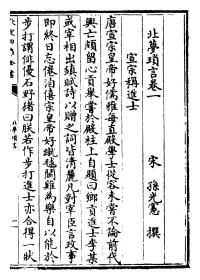 北夢瑣言卷一
宋 孫光憲 撰
宣宗稱進士
唐宣宗皇帝好儒雅每直殿學士從容未嘗不論前代
興亡頗留心貢舉嘗於殿柱上自題曰鄉貢進士李某
或宰相出鎮賦詩以贈之詞皆清麗凡對宰臣言政事
即終日忘倦洎僖宗皇帝好蹴毬鬭雞為樂自以能於
步打謂俳優石野猪曰朕若作步打進士亦合得一狀
北夢瑣言